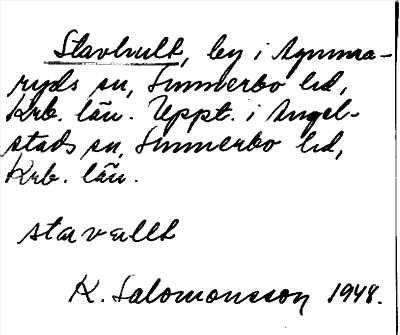 Stavhult, by i Agunna-
ryds sn, Sunnerbo hd,
Krb. län. Uppt. i Angel-
stads sn, Sunnerbo hd,
Krb. län.
stavallt
K. Salomonsson 1948.